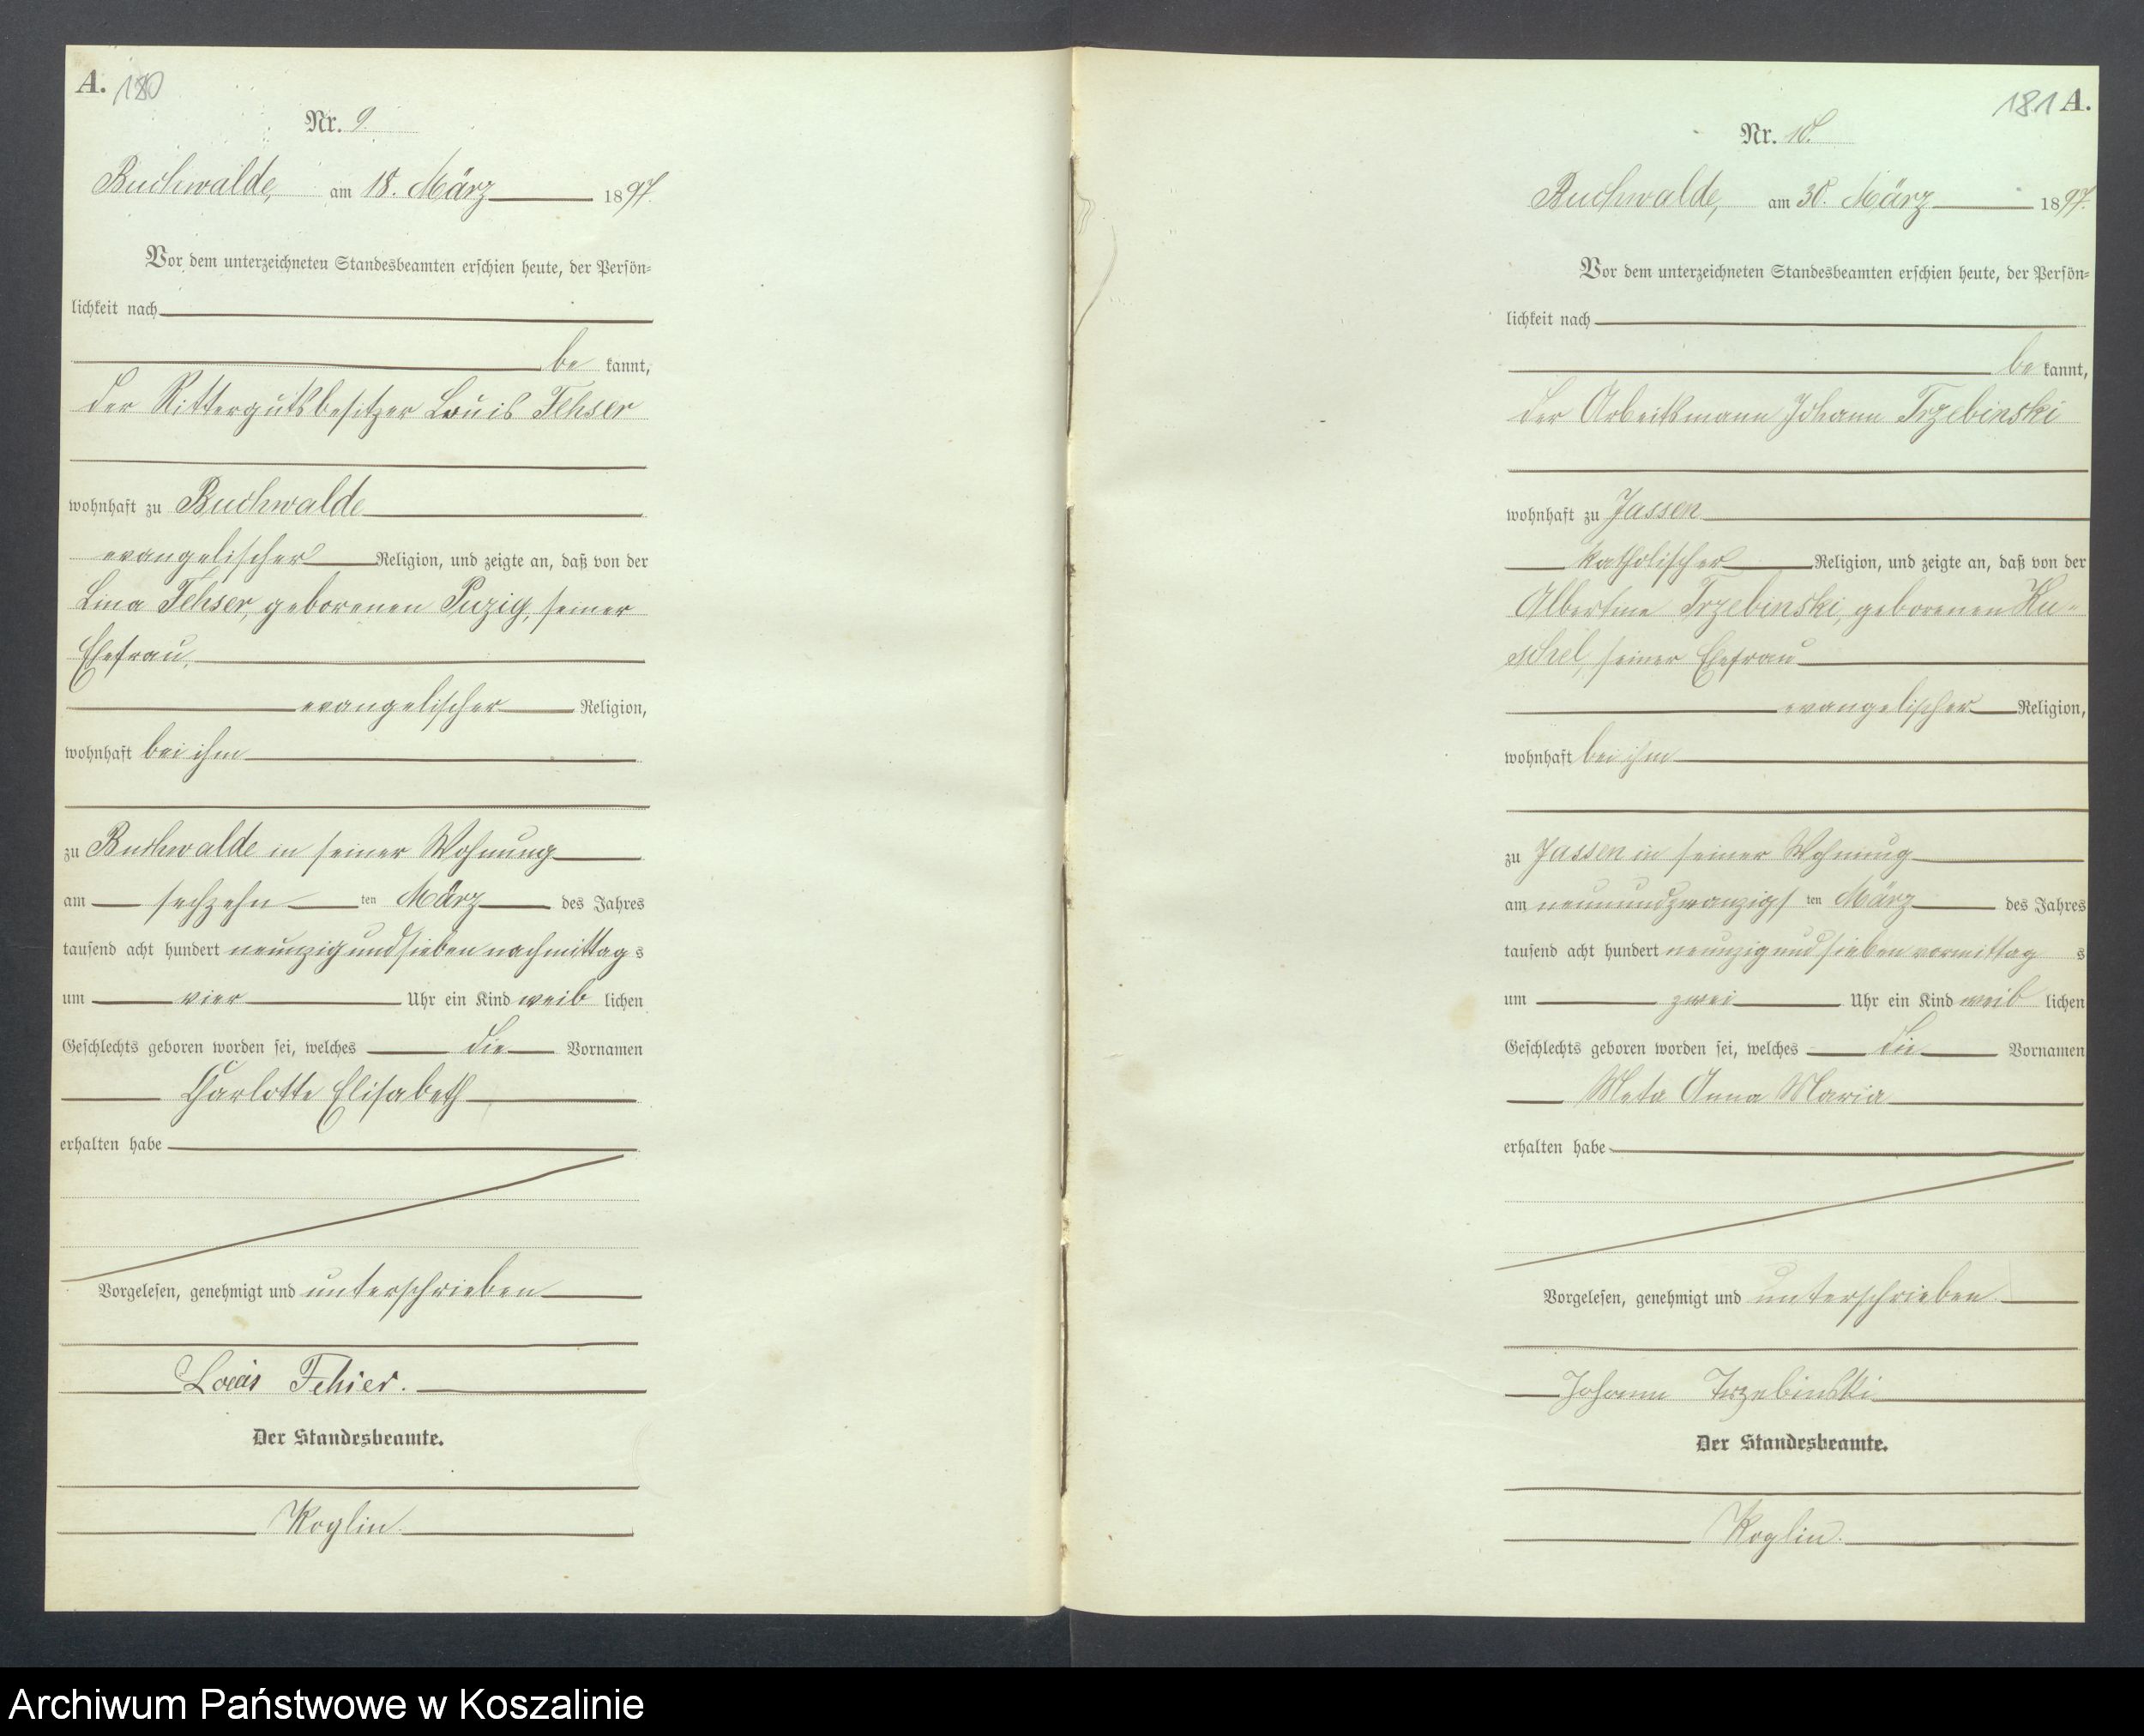 A. 180
Nr. 9.
Buchwalde, am 18. März 1897.
Vor dem unterzeichneten Standesbeamten erschien heute, der Persön-
lichkeit nach
be kannt,
der Rittergutsbesitzer Louis Fehser
wohnhaft zu Buchwalde
evangelischer Religion, und zeigte an, daß von der
Lina Fehser, geborenen Puzig, seiner
Ehefrau,
evangelischer Religion,
wohnhaft bei ihm
zu Buchwalde in seiner Wohnung
am sechzehn ten März des Jahres
tausend acht hundert neunzig und sieben nachmittag s
um vier Uhr ein Kind weib lichen
Geschlechts geboren worden sei, welches die Vornamen
Charlotte Elisabeth
erhalten habe
Vorgelesen, genehmigt und unterschrieben
Louis Fehser.
Der Standesbeamte.
Koglin.
181 A.
Nr. 10.
Buchwalde, am 30. März 1897.
Vor dem unterzeichneten Standesbeamten erschien heute, der Persön-
lichkeit nach
be kannt,
der Arbeitsmann Johann Trzebinski
wohnhaft zu Jassen
katholischer Religion, und zeigte an, daß von der
Albertine Trzebinski, geborenen Ku-
schel, seiner Ehefrau
evangelischer Religion,
wohnhaft bei ihm
zu Jassen in seiner Wohnung
am neunundzwanzigs ten März des Jahres
tausend acht hundert neunzig und sieben vormittag s
um zwei Uhr ein Kind weib lichen
Geschlechts geboren worden sei, welches die Vornamen
Meta Anna Maria
erhalten habe
Vorgelesen, genehmigt und unterschrieben
Johann Trzebinski
Der Standesbeamte.
Koglin.
Archiwum Państwowe w Koszalinie